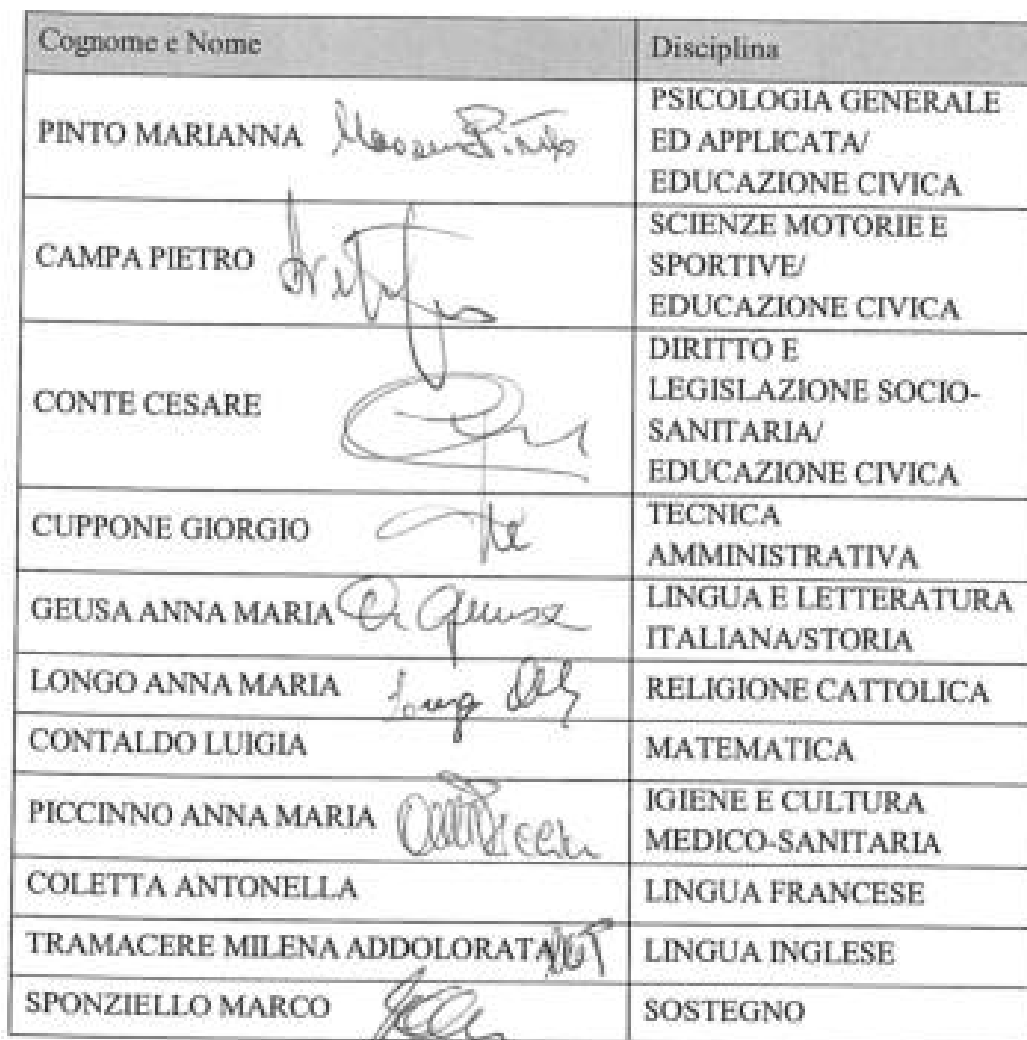 Cognome e Nome Disciplina
PINTO MARIANNA PSICOLOGIA GENERALE
ED APPLICATA/
EDUCAZIONE CIVICA
CAMPA PIETRO SCIENZE MOTORIE E
SPORTIVE/
EDUCAZIONE CIVICA
CONTE CESARE DIRITTO E
LEGISLAZIONE SOCIO-
SANITARIA/
EDUCAZIONE CIVICA
CUPPONE GIORGIO TECNICA
AMMINISTRATIVA
GEUSA ANNA MARIA LINGUA E LETTERATURA
ITALIANA/STORIA
LONGO ANNA MARIA RELIGIONE CATTOLICA
CONTALDO LUIGIA MATEMATICA
PICCINNO ANNA MARIA IGIENE E CULTURA
MEDICO-SANITARIA
COLETTA ANTONELLA LINGUA FRANCESE
TRAMACERE MILENA ADDOLORATA LINGUA INGLESE
SPONZIELLO MARCO SOSTEGNO